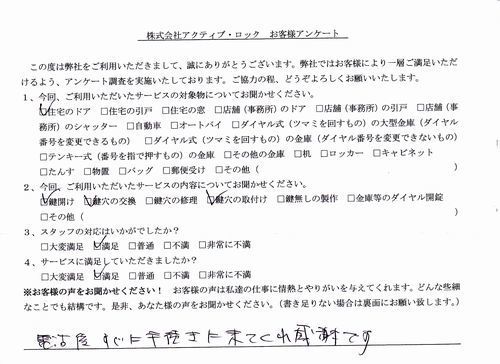 株式会社アクティブ・ロック　お客様アンケート
この度は弊社をご利用いただきまして、誠にありがとうございます。弊社ではお客様により一層ご満足いただ
けるよう、アンケート調査を実施いたしております。ご協力の程、どうぞよろしくお願いいたします。
1、今回、ご利用いただいたサービスの対象物についてお聞かせください。
☑住宅のドア　□住宅の引戸　□住宅の窓　□店舗（事務所）のドア　□店舗（事務所）の引戸　□店舗（事務
所）のシャッター　□自動車　□オートバイ　□ダイヤル式（ツマミを回すもの）の大型金庫（ダイヤル
番号を変更できるもの）　□ダイヤル式（ツマミを回すもの）の金庫（ダイヤル番号を変更できないもの）
□テンキー式（番号を指で押すもの）の金庫　□その他の金庫　□机　□ロッカー　□キャビネット
□たんす　□物置　□バッグ　□郵便受け　□その他（　　　　　　　　　　）
2、今回、ご利用いただいたサービスの内容についてお聞かせください。
☑鍵開け　☑鍵穴の交換　□鍵穴の修理　☑鍵穴の取付け　□鍵無しの製作　□金庫等のダイヤル開錠
□その他（　　　　　　　　　　）
3、スタッフの対応はいかがでしたか？
□大変満足　☑満足　□普通　□不満　□非常に不満
4、サービスに満足していただきましたか？
□大変満足　☑満足　□普通　□不満　□非常に不満
※お客様の声をお聞かせください！　お客様の声は私達の仕事に情熱とやりがいを与えてくれます。どんな些細
なことでも結構です。是非、あなた様の声をお聞かせください。（書き足りない場合は裏面にお願い致します。）
電話後 すぐに手際きに来てくれ感謝です